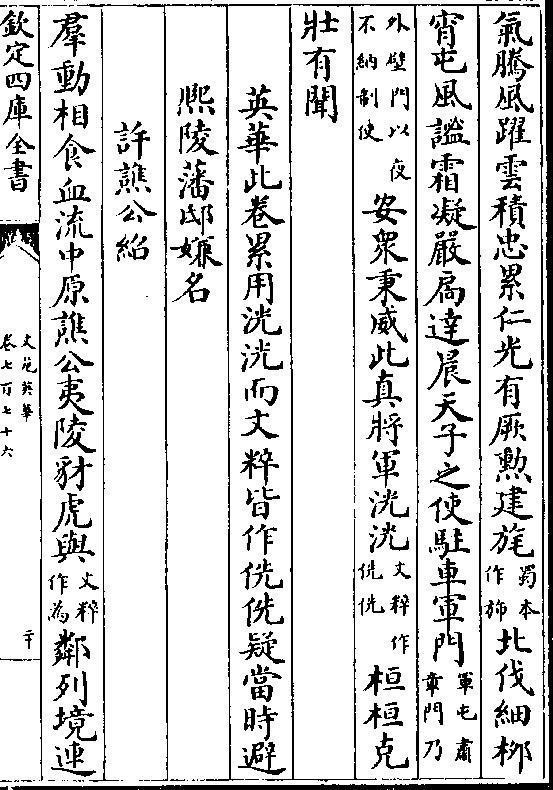 氣騰風躍雲積忠累仁光有厥勲建旄蜀本作斾北伐細栁
宵屯風謐霜凝嚴扄達晨天子之使駐車軍門軍屯肅章門乃
外壁門以夜不納制使安衆秉威此真將軍洸洸文粹作侊侊桓桓克
壯有聞
英華此卷累用洸洸而文粹皆作侊侊疑當時避
熈陵藩邸嫌名
許譙公紹
羣動相食血流中原譙公夷陵豺虎與文粹作為鄰列境連
欽定四庫全書
文苑英華
卷七百七十六
二十